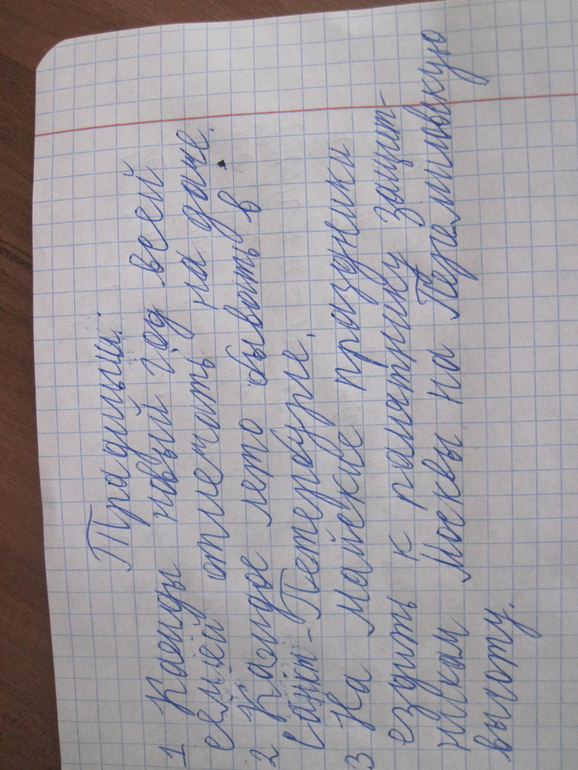 Традиции.
1 Кажды новый год всей
семьёй отмечать на даче.
2 Каждое лето бывать в
Санкт-Петербурге.
3 На майские праздники
ездить к памятнику защит-
никам Москвы на Перемиловскую
высоту.